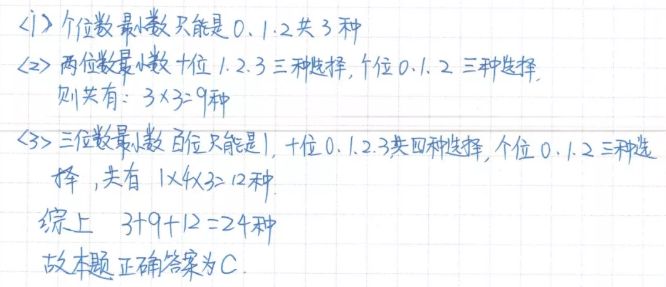 <1> 个位数最小数只能是0.1.2共3种
<2> 两位数最小数十位1.2.3三种选择,个位0.1.2三种选择,
则共有: 3×3=9种
<3> 三位数最小数百位只能是1,十位0.1.2.3共四种选择,个位0.1.2三种选
择,共有 1×4×3=12种.
综上 3+9+12=24种
故本题正确答案为C.